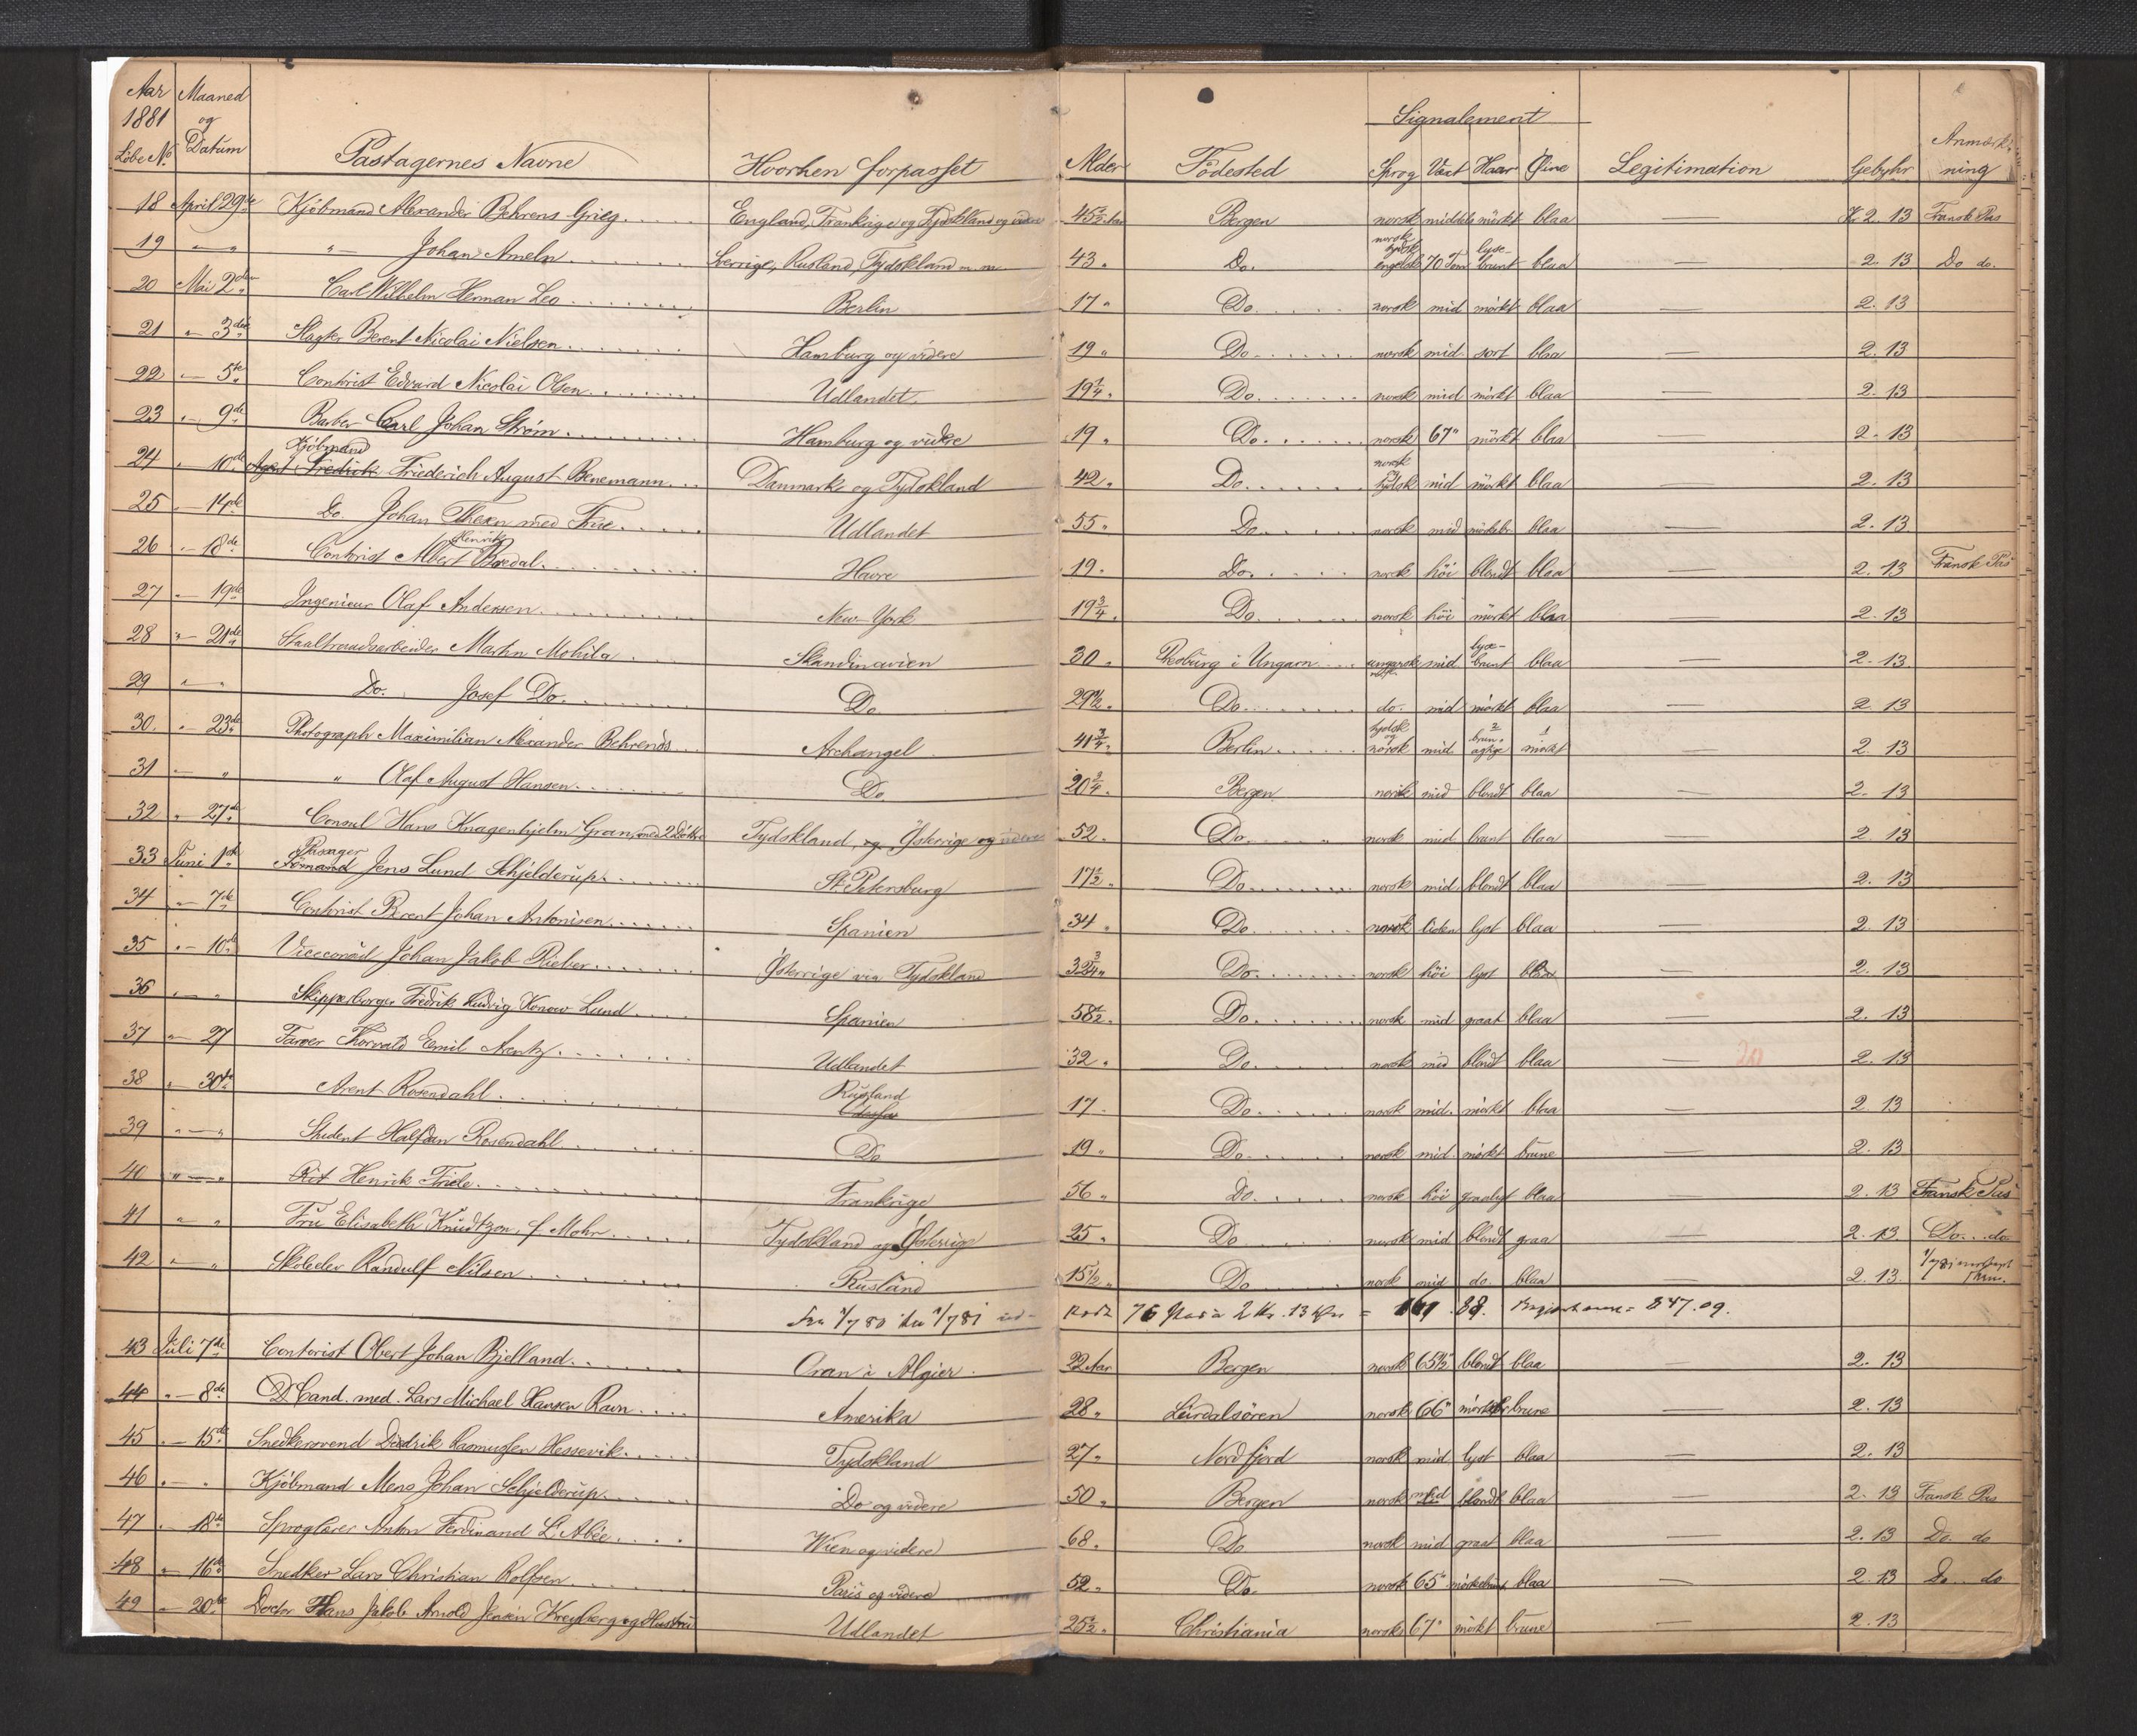 Aar 1881 Løbe No. | Maaned og Datum | Pastagernes Navne | Hvorhen forpasset | Alder | Födested | Signalement: Sprog | Vext | Haar | Øine | Legitimation | Gebyhr | Anmærkning
18 | April 29de | Kjöbmand Alexander Behrens Grieg | England, Frankrige og Tydskland og videre | 45 1/2 Aar | Bergen | norsk | middels | mörkt | blaa | — | Kr 2. 13 | Fransk Pas
19 | — " | " — Johan Ameln | Sverrige, Rusland, Tydskland m. m. | 43 " | Do. | norsk tydsk engelsk | 70 Tom | lyse-brunt | blaa | — | 2. 13 | Do do.
20 | Mai 2den | Carl Wilhelm Herman Leo | Berlin | 17 " | Do | norsk | mid | mörkt | blaa | — | 2. 13
21 | " — 3die | Slagter Berent Nicolai Nielsen | Hamburg og videre | 19 " | Do | norsk | mid. | sort | blaa | — | 2. 13
22 | — 5te | Contorist Edvard Nicolai Olsen | Udlandet. | 19 1/4 " | Do | norsk | mid | mörkt | blaa | — | 2. 13
23 | " — 9de | Barber Carl Johan Strøm | Hamburg og videre | 19 " | Do | norsk | 67" | mörkt | blaa | — | 2. 13
24 | " 10de | Kjöbmand Agent Fredrik Friederich August Benemann | Danmark og Tydskland | 42 " | Do | norsk tydsk | mid | mörkt | blaa | — | 2. 13
25 | — 14de | Do. Johan med Frue | Udlandet | 55 " | Do | norsk | mid | mörkebr. | blaa | — | 2. 13
26 | " — 18de | Contorist Albert Henrik Bredal | Havre | 19 " | Do. | norsk | höi | blondt | blaa | — | 2. 13 | Fransk Pas
27 | — 19de | Ingenieur Olaf Andersen | New-York | 19 3/4 " | Do | norsk | höi | mörkt | blaa | — | 2. 13
28 | " — 21de | Staaltraadsarbeider Martin Mohila | Skandinavien | 30 " | Presburg i Ungarn | ungarsk | mid | lyse-brunt | blaa | — | 2. 13
29 | " — " | Do. Josef Do. | Do | 29 1/2 " | Do | do. | mid | mörkt | blaa | — | 2. 13
30. | " 23de | Photograph Maximilian Alexander Behrends | Archangel | 41 3/4 " | Berlin | tydsk og norsk | mid | brunagtige | mörkt | — | 2. 13
31 | — " | " Olaf August Hansen | Do | 20 3/4 " | Bergen | norsk | mid | blondt | blaa | — | 2. 13
32 | " 27de | Consul Hans Knagenhjelm Gran, med 2 Döttre | Tydskland, og Østerrige og videre | 52 " | Do | norsk | mid | brunt | blaa | — | 2. 13
33 | Juni 1ste | Passager Formand Jens Lund Schjelderup | St. Petersburg | 17 1/2 " | Do | norsk | mid. | blondt | blaa | — | 2. 13
34 | — 7de | Contorist Berent Johan Antonisen | Spanien | 34 " | Do | norsk | liden | lyst | blaa | — | 2. 13
35 | " — 10de | Viceconsul Johan Jakob Rieber | Østerrige via Tydskland | 32 3/4 " | Do | norsk | höi | lyst | blaa | — | 2. 13
36 | " — " | Skipperborger Fredrik Ludvig Konow Lund | Spanien | 58 1/2 " | Do | norsk | mid | graat | blaa | — | 2. 13
37 | " — 27 | Farver Thorvald Emil Arentz | Udlandet | 32 " | Do | norsk | mid | blondt | blaa | — 20 | 2. 13
38 | " — 30te | Arent Rosendahl | Rusland Odessa | 17 " | Do | norsk | mid. | mörkt | blaa | — | 2. 13
39 | " — " | Student Halfdan Rosendahl | Do | 19 " | Do | norsk | mid. | mörkt | brune | — | 2. 13
40 | " — " | Henrik | Frankrige | 56 " | Do. | norsk | höi | graalyst | blaa | — | 2. 13 | Fransk Pas
41 | " — " | Fru Elisabeth Knudtzon, f. Mohr | Tydskland og Østerrige | 25 " | Do | norsk | mid | blondt | graa | — | 2. 13 | Do.. do
42 | " — " | Skoleelev Randulf Nilsen | Rusland | 15 1/2 " | Do | norsk | mid | do. | blaa | — | 2. 13. | 1/7 81
Fra 1/7 80 til 1/7 81 ud- stedt 76 Pas a 2 Kr. 13 Øre = 161 . 88. = 847.09.
43 | Juli 7de | Contorist Olbert Johan Bjelland | Oran i Algier | 22 Aar | Bergen | norsk | 65 1/2" | blondt | blaa | — | 2. 13
44 | " — 8de | D Cand. med. Lars Michael Hansen Ravn | Amerika | 28 " | Leirdalsören | norsk | 66" | mörkebr | brune | — | 2. 13
45 | . — 15de | Snedkersvend Diedrik Rasmussen Hessevik | Tydskland | 27 " | Nordfjord | norsk | mid | lyst | blaa | — | 2. 13
46 | . — . | Kjöbmand Mens Johan Schjelderup | Do og videre | 50 " | Bergen | norsk | mid | blondt | blaa | — | 2. 13 | Fransk Pas
47 | . — 18de | Sproglærer Anton Ferdinand L'Abée | Wien og videre | 68 " | Do | norsk | mid | graat | blaa | — | 2. 13 | Do. do
48 | " — 16de | Snedker Lars Christian Rolfsen | Paris og videre | 52 " | Do | norsk | 65" | mörkebrunt | blaa | — | 2. 13 | Do.. do
49 | " — 20de | Doctor Hans Jakob Arnold Jensin Kreyberg og Hustru | Udlandet | 25 1/2 " | Christiania | norsk | 67" | mörkt | brune | — | 2. 13